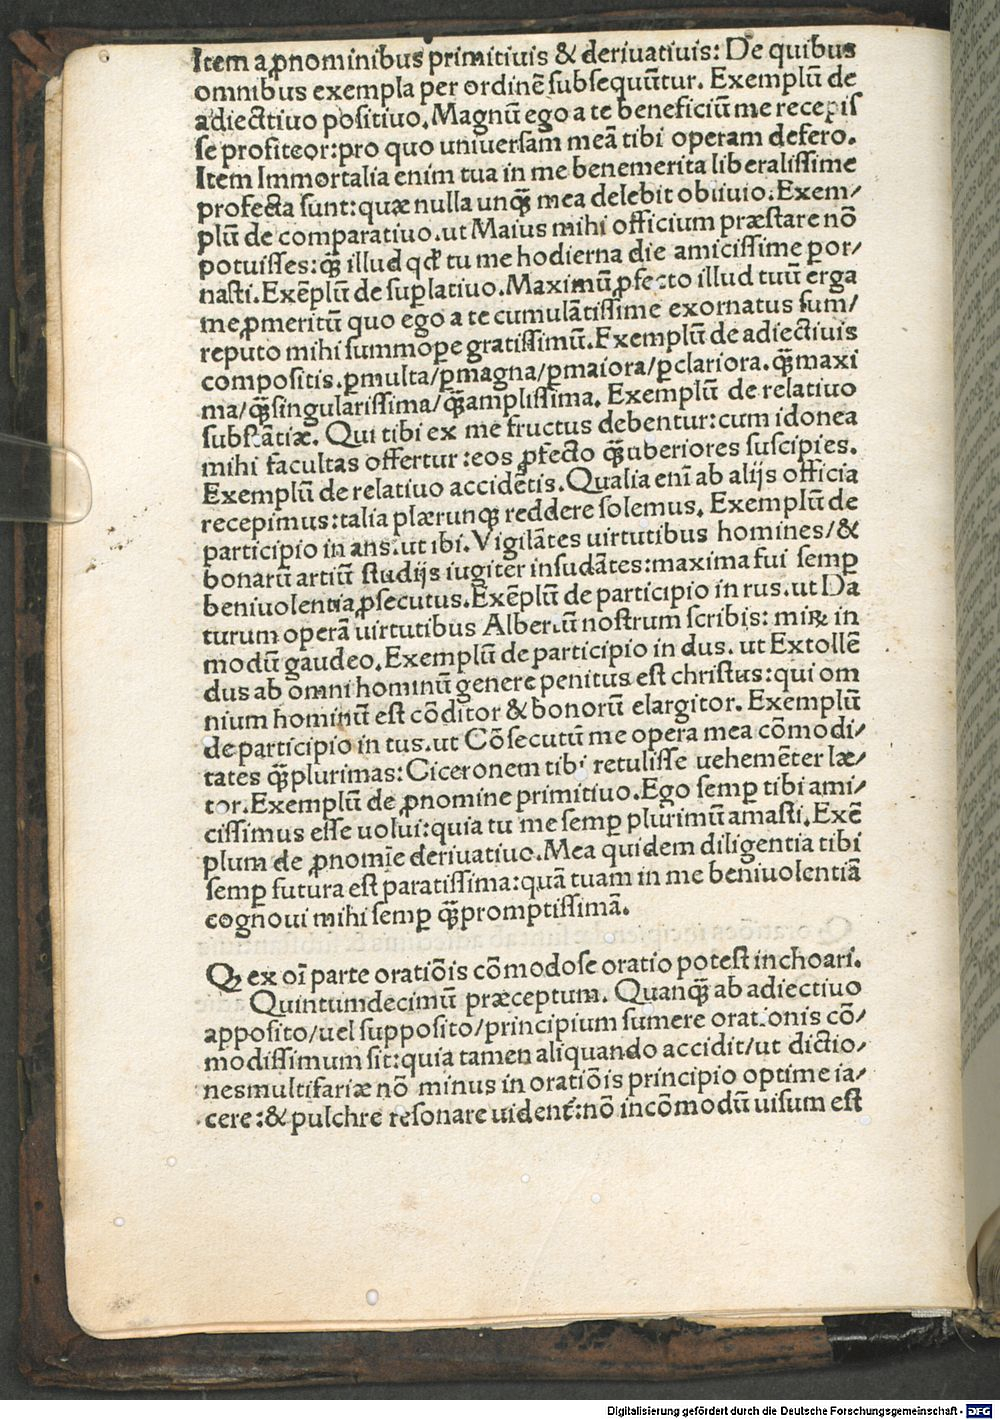 Item a ꝓnominibus primitiuis & deriuatiuis: De quibus
omnibus exempla per ordinē subsequūtur. Exemplū de
adiectiuo positiuo. Magnū ego a te beneficiū me recepis
se profiteor: pro quo uniuersam meā tibi operam defero.
Item Immortalia enim tua in me benemerita liberalissime
profecta sunt: quæ nulla unꝗ̄ mea delebit obliuio. Exem/
plū de comparatiuo. ut Maius mihi officium præstare nō
potuisses: ꝗ̄ illud qd' tu me hodierna die amicissime por/
nasti. Exēplū de suꝑlatiuo. Maximū ꝓfecto illud tuū erga
me ꝓmeritū quo ego a te cumulātissime exornatus sum/
reputo mihi summoꝑe gratissimū. Exemplū de adiectiuis
compositis. ꝑmulta/ ꝑmagna/ ꝑmaiora/ ꝑclariora. ꝗ̄maxi
ma/ ꝗ̄singularissima/ ꝗ̄amplissima. Exemplū de relatiuo
substātiæ. Qui tibi ex me fructus debentur: cum idonea
mihi facultas offertur: eos ꝓfecto ꝗ̄uberiores suscipies.
Exemplū de relatiuo accidētis. Qualia enī ab alijs officia
recepimus: talia plærunqꝫ reddere solemus. Exemplū de
participio in ans. ut ibi. Vigilātes uirtutibus homines/ &
bonarū artiū studijs iugiter insudātes: maxima fui semꝑ
beniuolentia ꝓsecutus. Exēplū de participio in rus. ut Da
turum operā uirtutibus Albertū nostrum scribis: miꝝ in
modū gaudeo. Exemplū de participio in dus. ut Extollē
dus ab omni hominū genere penitus est christus: qui om
nium hominū est cōditor & bonorū elargitor. Exemplū
de participio in tus. ut Cōsecutū me opera mea cōmodi/
tates ꝗ̄plurimas: Ciceronem tibi retulisse uehemēter læ/
tor. Exemplū de ꝓnomine primitiuo. Ego semꝑ tibi ami/
cissimus esse uolui: quia tu me semꝑ plurimū amasti. Exē
plum de ꝓnomīe deriuatiuo. Mea quidem diligentia tibi
semꝑ futura est paratissima: quā tuam in me beniuolentiā
cognoui mihi semꝑ ꝗ̄promptissimā.
Qꝫ ex oī parte oratiōis cōmodose oratio potest inchoari.
Quintumdecimū præceptum. Quanꝗ̄ ab adiectiuo
apposito/ uel supposito/ principium sumere orationis cō/
modissimum sit: quia tamen aliquando accidit/ ut dictio/
nes multifariæ nō minus in oratiōis principio optime ia/
cere: & pulchre resonare uident᷑: nō incōmodū uisum est
Digitalisierung gefördert durch die Deutsche Forschungsgemeinschaft - DFG